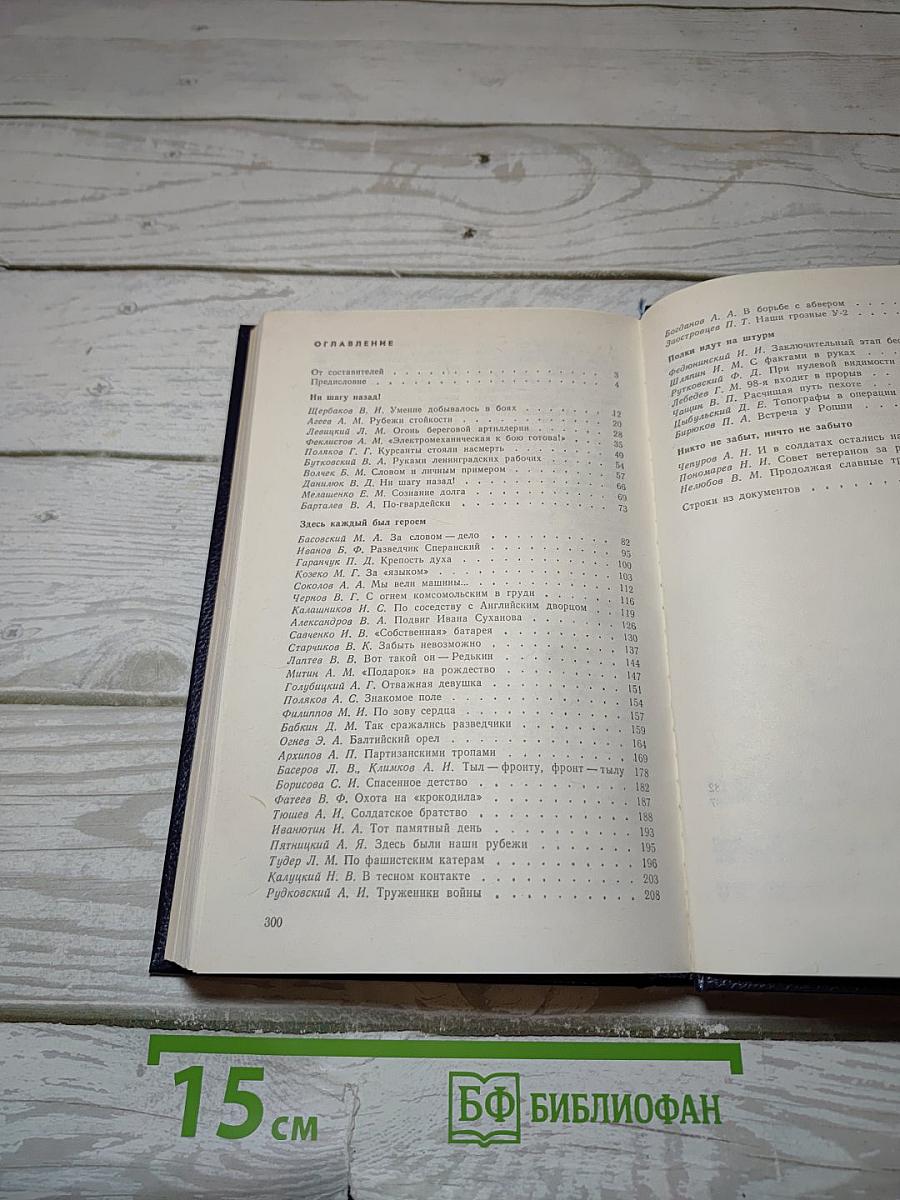 ОГЛАВЛЕНИЕ
От составителей . . . . . . . . . . 3
Предисловие . . . . . . . . . . 4
Ни шагу назад!
Щербаков В. И. Умение добывалось в боях . . . . . . 12
Агеев А. М. Рубежи стойкости . . . . . . 20
Левицкий Л. М. Огонь береговой артиллерии . . . . . . 28
Феклистов А. М. «Электромеханическая к бою готова!» . . . . 35
Поляков Г. Г. Курсанты стояли насмерть . . . . . . 40
Бутковский В. А. Руками ленинградских рабочих . . . . . . 54
Волчек Б. М. Словом и личным примером . . . . . . 57
Данилюк В. Д. Ни шагу назад! . . . . . . 66
Мелашенко Е. М. Сознание долга . . . . . . 69
Барталев В. А. По-гвардейски . . . . . . 73
Здесь каждый был героем
Басовский М. А. За словом — дело . . . . . . 82
Иванов Б. Ф. Разведчик Сперанский . . . . . . 95
Гаранчук П. Д. Крепость духа . . . . . . 100
Козеко М. Г. За «языком» . . . . . . 103
Соколов А. А. Мы вели машины... . . . . . . 112
Чернов В. Г. С огнем комсомольским в груди . . . . . . 116
Калашников И. С. По соседству с Английским дворцом . . 119
Александров В. А. Подвиг Ивана Суханова . . . . . . 126
Савченко И. В. «Собственная» батарея . . . . . . 130
Старчиков В. К. Забыть невозможно . . . . . . 137
Лаптев В. В. Вот такой он — Редькин . . . . . . 144
Митин А. М. «Подарок» на рождество . . . . . . 147
Голубицкий А. Г. Отважная девушка . . . . . . 151
Поляков А. С. Знакомое поле . . . . . . 154
Филиппов М. И. По зову сердца . . . . . . 157
Бабкин Д. М. Так сражались разведчики . . . . . . 159
Огнев Э. А. Балтийский орел . . . . . . 164
Архипов А. П. Партизанскими тропами . . . . . . 169
Басеров Л. В., Климков А. И. Тыл — фронту, фронт — тылу 178
Борисова С. И. Спасенное детство . . . . . . 182
Фатеев В. Ф. Охота на «крокодила» . . . . . . 187
Тюшев А. И. Солдатское братство . . . . . . 188
Иванютин И. А. Тот памятный день . . . . . . 193
Пятницкий А. Я. Здесь были наши рубежи . . . . . . 195
Тудер Л. М. По фашистским катерам . . . . . . 196
Калуцкий Н. В. В тесном контакте . . . . . . 203
Рудковский А. И. Труженики войны . . . . . . 208
300
Богданов А. А. В борьбе с абвером . . . .
Заостровцев П. Т. Наши грозные У-2 . . . .
Полки идут на штурм
Федюнинский И. И. Заключительный этап
Шляпин И. М. С фактами в руках . . .
Рутковский Ф. Д. При нулевой видимости
Лебедев Г. М. 98-я входит в прорыв . .
Чащин В. П. Расчищая путь пехоте . .
Цыбульский Д. Е. Топографы в операции
Бирюков П. А. Встреча у Ропши . . .
Никто не забыт, ничто не забыто
Чепуров А. Н. И в солдатах остались
Пономарев Н. И. Совет ветеранов за
Нелюбов В. М. Продолжая славные
Строки из документов . . . . . .
15 см
БФ БИБЛИОФАН